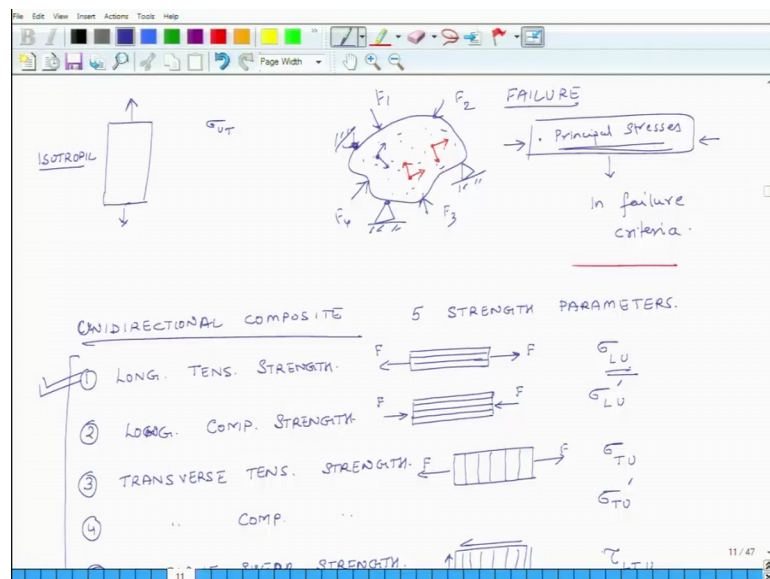 File Edit View Insert Actions Tools Help
B I
Page Width
F1 F2 FAILURE
σUT
· Principal Stresses
ISOTROPIL
In failure
F4 F3
criteria.
UNIDIRECTIONAL COMPOSITE 5 STRENGTH PARAMETERS.
① LONG. TENS. STRENGTH. F F σLU
② LONG. COMP. STRENGTH F F σLU'
③ TRANSVERSE TENS. STRENGTH. F F σTU
④ " COMP. " σTU'
SHEAR STRENGTH. τLTU
11 / 47
11